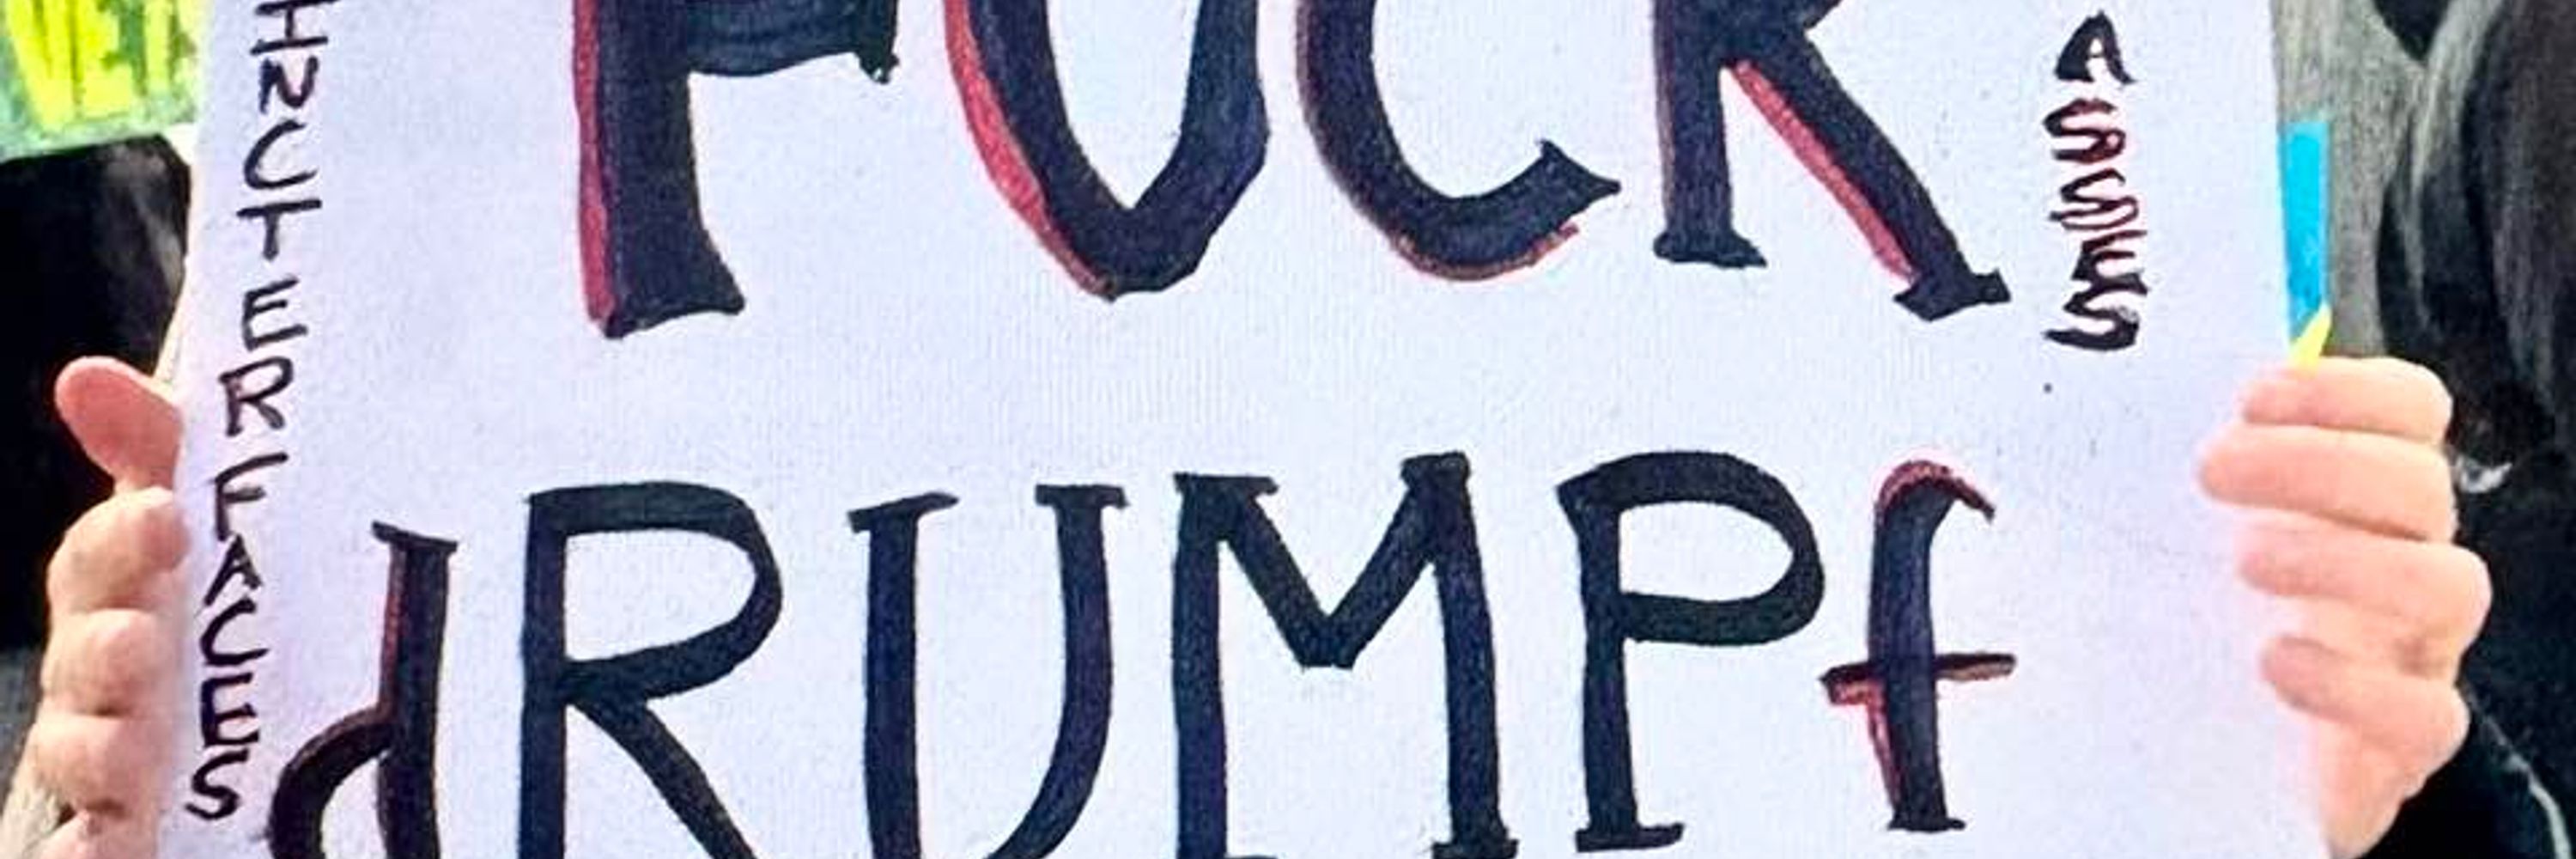 INCTERFACES
FUCK
ASSES
dRUMPf